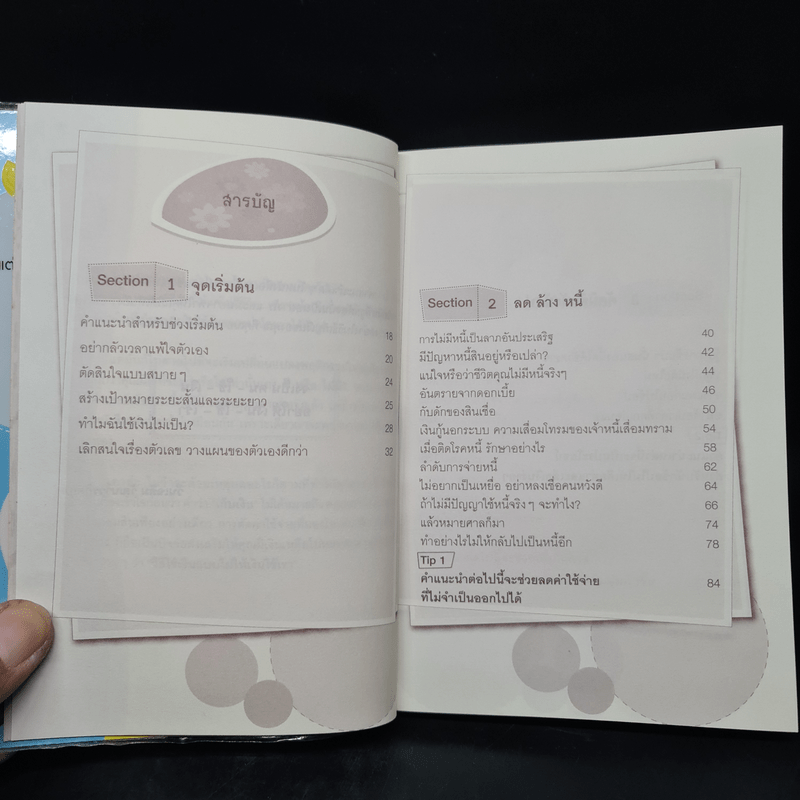 สารบัญ
Section 1 จุดเริ่มต้น
คำแนะนำสำหรับช่วงเริ่มต้น 18
อย่ากลัวเวลาแพ้ใจตัวเอง 20
ตัดสินใจแบบสบายๆ 24
สร้างเป้าหมายระยะสั้นและระยะยาว 25
ทำไมฉันใช้เงินไม่เป็น? 28
เลิกสนใจเรื่องตัวเลข วางแผนของตัวเองดีกว่า 32
Section 2 ลด ล้าง หนี้
การไม่มีหนี้เป็นลาภอันประเสริฐ 40
มีปัญหาหนี้สินอยู่หรือเปล่า? 42
แน่ใจหรือว่าชีวิตคุณไม่มีหนี้จริงๆ 44
อันตรายจากดอกเบี้ย 46
กับดักของสินเชื่อ 50
เงินกู้นอกระบบ ความเสื่อมโทรมของเจ้าหนี้เสื่อมทราม 54
เมื่อติดโรคหนี้ รักษาอย่างไร 58
ลำดับการจ่ายหนี้ 62
ไม่อยากเป็นเหยื่อ อย่าหลงเชื่อคนหวังดี 64
ถ้าไม่มีปัญญาใช้หนี้จริงๆ จะทำไง? 66
แล้วหมายศาลก็มา 74
ทำอย่างไรไม่ให้กลับไปเป็นหนี้อีก 78
Tip 1
คำแนะนำต่อไปนี้จะช่วยลดค่าใช้จ่าย 84
ที่ไม่จำเป็นออกไปได้